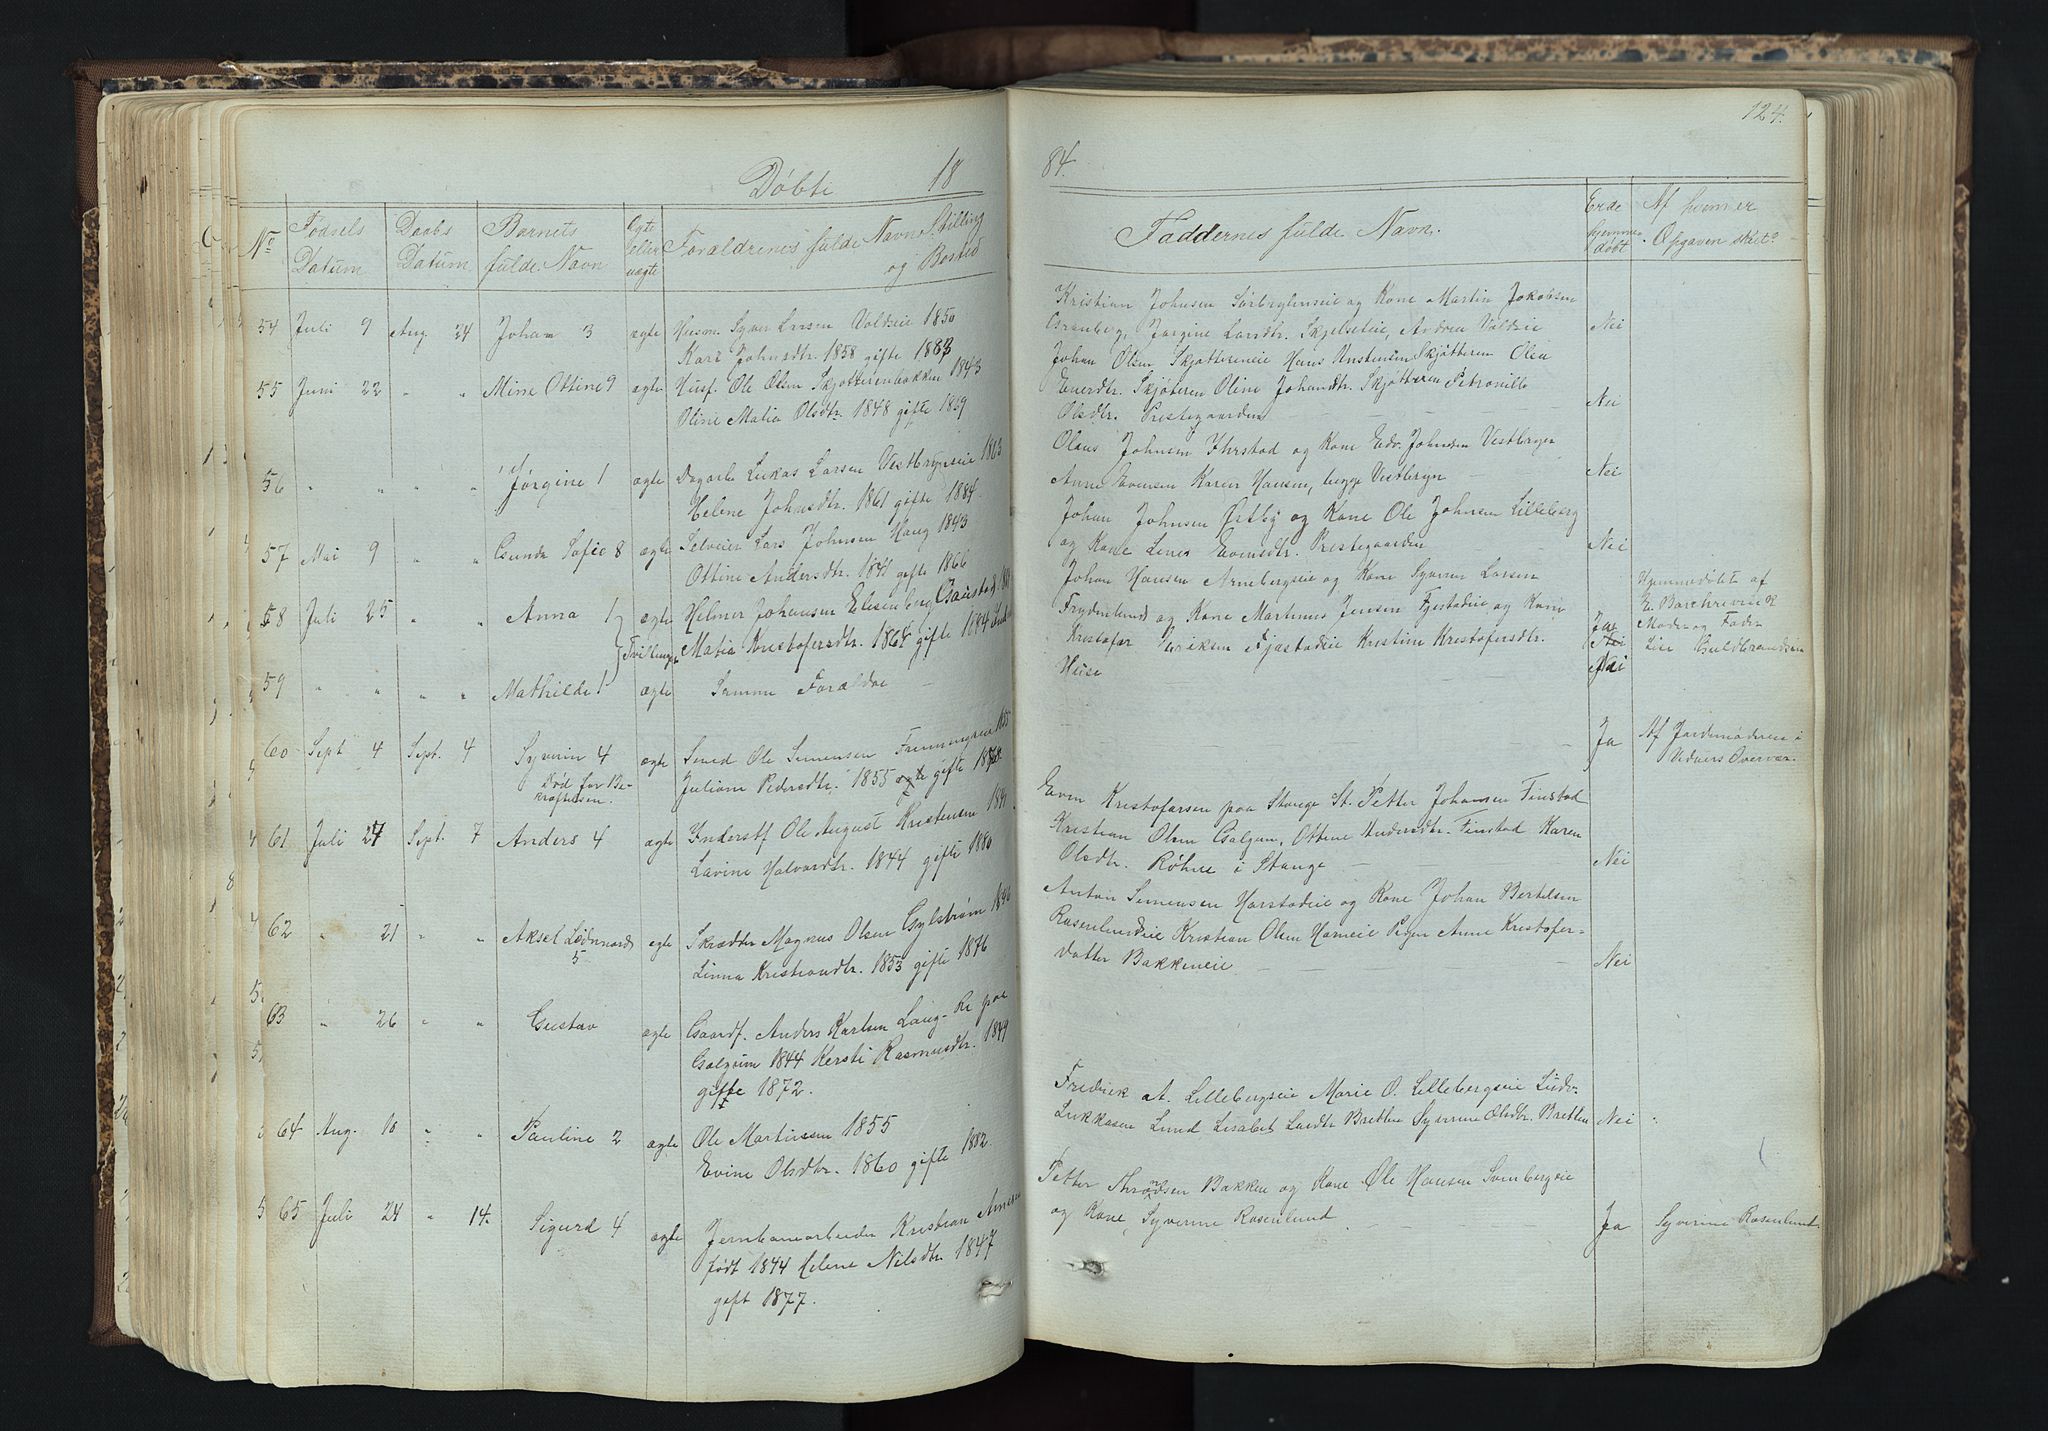 124.
Døbte 18
84.
No
Fødsels Datum
Daabs Datum
Barnets fulde Navn
Ægte eller uægte
Forældrenes fulde Navn Stilling og Bosted
Faddernes fulde Navn.
Er de hjemme døbt
Af hvem er Opgaven sket?
54 Juli 9 Aug. 24 Johan 3 ægte Husm. Syver Larsen Voldseie 1850
Kari Johnsdtr. 1858 gifte 1883
55 Juni 22 " " Mine Ottine 9 ægte Husf. Ole Olsen Skjøtterenbakken 1843
Oline Matia Olsdtr. 1848 gifte 1869
56 " " " " Jørgine 1 ægte Dagarb. Lukas Larsen Vestbyneie 1863
Helene Johnsdtr. 1861 gifte 1884.
57 Mai 9 " " Gunda Sofie 8 ægte Selveier Lars Johnsen Haug 1843
Ottine Andersdtr. 1841 gifte 1866
58 Juli 25 " " Anna 1 ægte Helmer Johansen
Tvillinger Matia Kristofersdtr. 1864 gifte 1884
59 " " " " Mathilde 1 ægte Samme Forældre
60 Sept 4 Sept. 4 Syverin 4 ægte Smed Ole Simensen
Død før Be-
kræftelsen. Juliane Pedersdtr. 1855 gifte
61 Juli 27 Sept. 7 Anders 4 ægte Inderstf Ole August Kristensen 1840
Lavine Halvardtr. 1844 gifte 1880
62 " 21 " " Aksel Ledvard 5 ægte Skrædder Magnus Olsen Gylstrøm 1846
Linna Kristiandtr. 1853 gifte 1876
63 " 26 " " Gustav ægte Gaardf. Anders Karlsen Laug-Re paa
Galgum 1844 Kersti Rasmusdtr. 1849
gifte 1872.
64 Aug. 18 " " Pauline 2 ægte Ole Martinsen 1855
Evine Olsdtr. 1860 gifte 1882.
65 Juli 24 " 14. Sigurd 4 ægte Jernbanearbeider Kristian
født 1844 Helene Nilsdtr. 1847
gift 1877.
Kristian Johnsen og Kone Martin Jakobsen
Granberg, Jørgine Larsdtr. Skjelseteie, Andrea Voldseie Nei
Johan Olsen Skjøttereneie Hans Skjøtteren Olea
Enerdtr. Skjøteren Oline Johandtr. Skjøtteren Petronille
Olsdtr. Prestegaarden Nei
Olaus Johnsen Ihrstad og Kone Edv. Johnsen Vestbyen
Anne Evensen Karen Hansen, begge Vestbyn Nei
Johan Johnsen og Kone Ole Johnsen Lilleberg
og Kone Lene Evensdtr. Prestegaarden Nei
Johan Hansen Arnebergseie og Kone Syver Larsen
Frydenlund og Kone Martinus Jensen Fjestadeie og Kone
Kristofer Eriksen Fjæstadeie Kristine Kristofersdtr.
Huse
Ja
Nei
Nei
Hjemmedøbt af
Moder og Fader
Lise Guldbrandsen
Ja Af Jordemoderen i
Vidners Overvær.
Even Kristofersen paa Stange St. Petter Johansen Finstad
Kristian Olsen Galgum, Ottine Andersdtr. Finstad Karen
Olsdtr. Røhne i Stange Nei
Anton Simensen Harstadeie og Kone Johan Bertelsen
Rosenlundeie Kristian Olsen Horneie Pigen Anne Kristofer-
datter Bakkeneie Nei
Fredrik A. Lillebergseie Marie O. Lillebergseie Ludv.
Lukkasen Lund Lisabet Larsdtr Bretten Syverine Olsdtr. Bretten Nei
Petter Thrandsen Bakken og Kone Ole Hansen Sornbergseie
og Kone, Syverine Rosenlund Ja Syverine Rosenlund